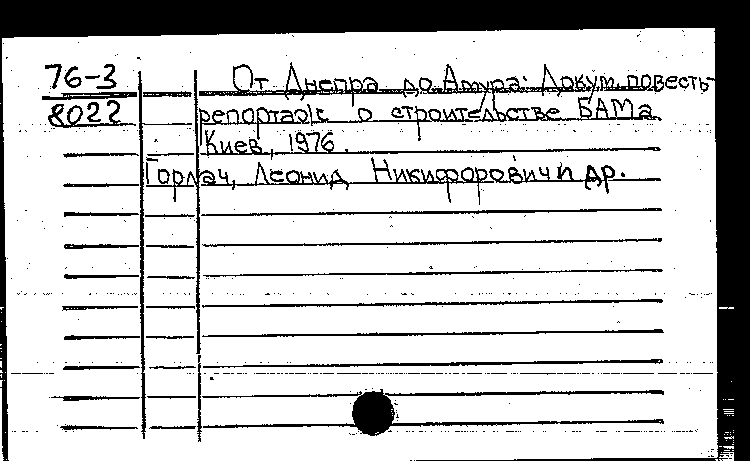 76-3 От Днепра до Амура: Докум. повесть-
8022 репортаж о строительстве БАМа.
Киев, 1976.
Горлач, Леонид Никифорович и др.